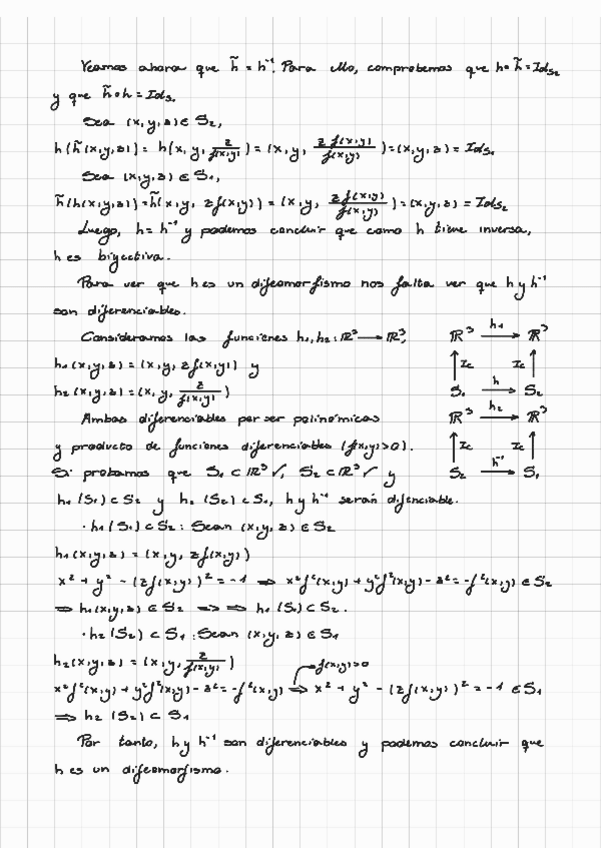 Veamos ahora que h̃ = h⁻¹. Para ello, comprobemos que h∘h̃ = Id_S₂
y que h̃∘h = Id_S₁
Sea (x,y,z) ∈ S₂,
h(h̃(x,y,z)) = h(x, y, z/f(x,y)) = (x, y, z f(x,y)/f(x,y)) = (x,y,z) = Id_S₁
Sea (x,y,z) ∈ S₁,
h̃(h(x,y,z)) = h̃(x, y, z f(x,y)) = (x, y, z f(x,y)/f(x,y)) = (x,y,z) = Id_S₂
Luego, h = h⁻¹ y podemos concluir que como h tiene inversa,
h es biyectiva.
Para ver que h es un difeomorfismo nos falta ver que h y h⁻¹
son diferenciables.
Consideramos las funciones h₁, h₂ : ℝ³ → ℝ³,
h₁(x,y,z) = (x, y, z f(x,y)) y
h₂(x,y,z) = (x, y, z/f(x,y))
ℝ³ h₁→ ℝ³
↑Ic Ic↑
S₁ h→ S₂
Ambas diferenciables por ser polinómicas
y producto de funciones diferenciables (f(x,y)>0).
ℝ³ h₂→ ℝ³
↑Ic Ic↑
S₂ h⁻¹→ S₁
Si probamos que S₁ ⊂ ℝ³ ✓, S₂ ⊂ ℝ³ ✓ y
h₁(S₁) ⊂ S₂ y h₂(S₂) ⊂ S₁, h y h⁻¹ serán difenciable.
· h₁(S₁) ⊂ S₂ : Sean (x,y,z) ∈ S₂
h₁(x,y,z) = (x, y, z f(x,y))
x² + y² - (z f(x,y))² = -1 ⇒ x² f²(x,y) + y² f²(x,y) - z² = -f²(x,y) ∈ S₂
⇒ h₁(x,y,z) ∈ S₂ ⇒ ⇒ h₁(S₁) ⊂ S₂.
· h₂(S₂) ⊂ S₁ : Sean (x,y,z) ∈ S₁
h₂(x,y,z) = (x, y, z/f(x,y))
f(x,y)>0
x² f²(x,y) + y² f²(x,y) - z² = -f²(x,y) ⇒ x² + y² - (z f(x,y))² = -1 ∈ S₁
⇒ h₂(S₂) ⊂ S₁
Por tanto, h y h⁻¹ son diferenciables y podemos concluir que
h es un difeomorfismo.